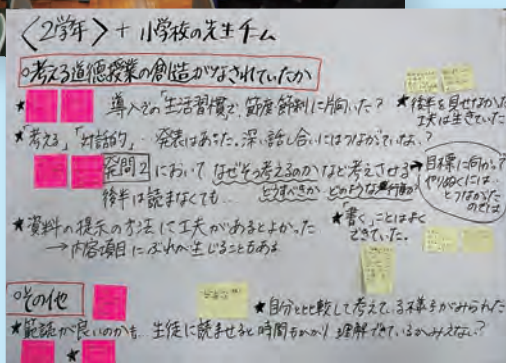 〈2学年〉+ 小学校の先生チーム
○考える道徳授業の創造がなされていたか
★ 導入での「生活習慣で、節度節制に片向いた? ★後半を見せなかった
工夫は生きていた
★「考える」「対話的」… 発表はあった。深い話し合いにはつながっていない?
発問2 において なぜそう考えるのかなど考えさせる→目標に向かって
やりぬくには…
とつながった
のでは
後半は読まなくても… どうすべきか どのような
★資料の提示の方法に工夫があるとよかった
→内容項目にぶれが生じることもある
★「書く」ことはよく
できていた。
○その他
★自分と比較して考えている様子がみられた
★範読が良いのかも… 生徒に読ませると時間もかかり 理解できているかみえない?
★